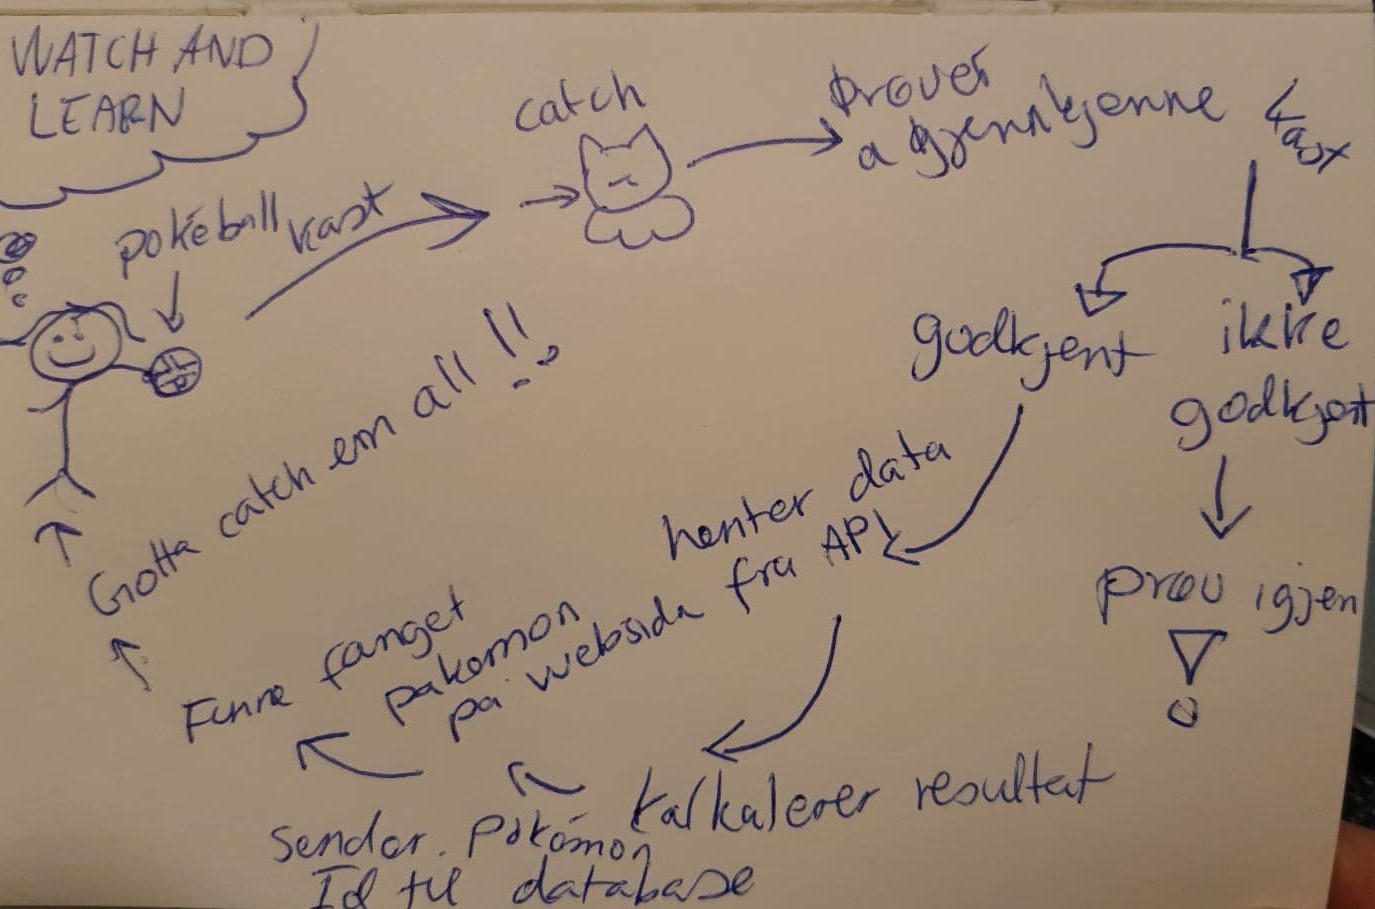 WATCH AND
LEARN
pokéball
kast
catch
prøver
a gjennkjenne
kast
godkjent
ikke
godkjent
prøv igjen
henter data
fra API
kalkalerer resultat
Sender pokémon
Id til database
Finne fanget
pakomon
på websida
Gotta catch em all !!